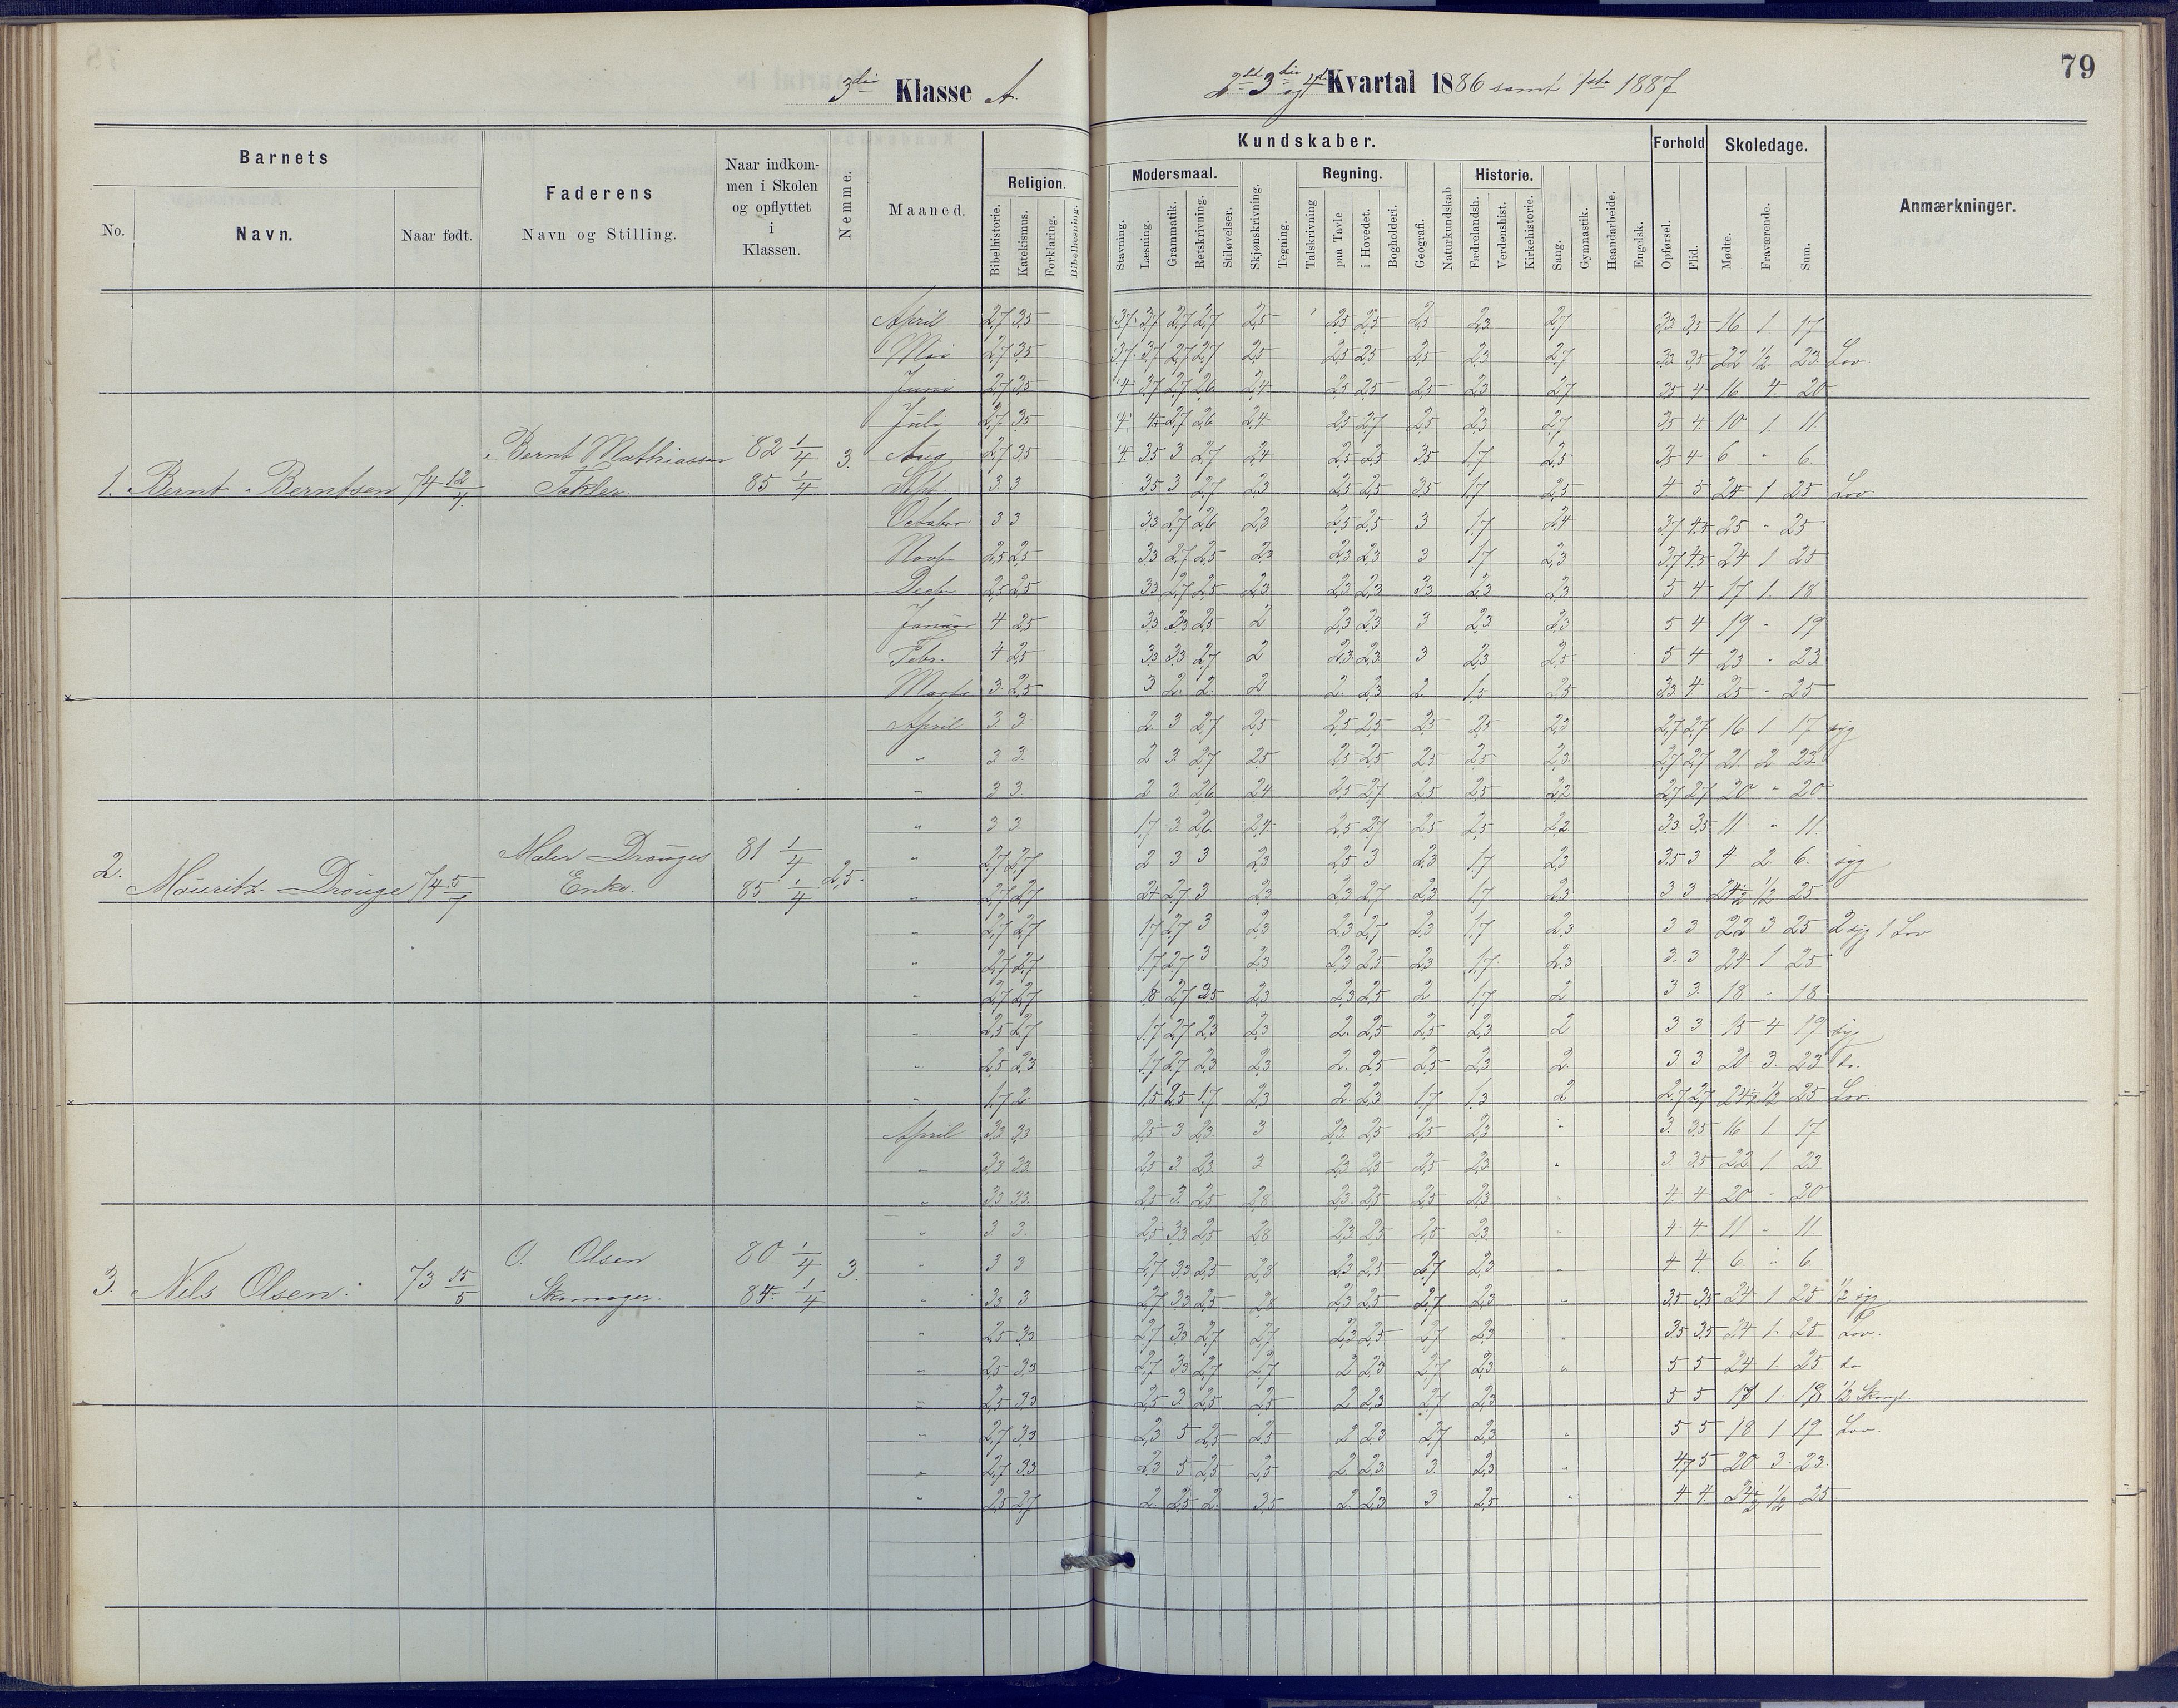 79
3die Klasse A.
2det 3die og 4de Kvartal 1886 samt 1ste 1887
Barnets
No.
Navn.
Naar født.
Faderens
Navn og Stilling.
Naar indkom-
men i Skolen
og opflyttet
i
Klassen.
Nemme.
Maaned.
Kundskaber.
Religion.
Bibelhistorie.
Katekismus.
Forklaring.
Bibellæsning.
Modersmaal.
Stavning.
Læsning.
Grammatik.
Retskrivning.
Stiløvelser.
Skjønskrivning.
Tegning.
Regning.
Talskrivning
paa Tavle
i Hovedet.
Bogholderi.
Geografi.
Naturkundskab
Historie.
Fædrelandsh.
Verdenshist.
Kirkehistorie.
Sang.
Gymnastik.
Haandarbeide.
Engelsk.
Forhold
Opførsel.
Flid.
Skoledage.
Mødte.
Fraværende.
Sum.
Anmærkninger.
April 2,7 3,5 3,7 3,7 2,7 2,7 2,5 2,5 2,5 2,5 2,3 2,7 3,3 3,5 16 1 17
Mai 2,7 3,5 3,7 3,7 2,7 2,7 2,5 2,5 2,5 2,5 2,3 2,7 3,3 3,5 22 1/2 23 Lov
Juni 2,7 3,5 4 3,7 2,7 2,6 2,4 2,5 2,5 2,5 2,3 2,7 3,5 4 16 4 20
Juli 2,7 3,5 4 4 2,7 2,6 2,4 2,5 2,7 2,5 2,3 2,7 3,5 4 10 1 11
1. Bernt Berntsen 74 12/4 Bernt Mathiassen Takler. 82 1/4 85 1/4 3.
Aug 2,7 3,5 4 3,5 3 2,7 2,4 2,5 2,5 3,5 1,7 2,5 3,5 4 6 " 6
Sept 3 3 3,5 3 2,7 2,3 2,5 2,5 3,5 1,7 2,5 4 5 24 1 25 Lov
October 3 3 3,3 2,7 2,6 2,3 2,5 2,5 3 1,7 2,4 3,7 4,5 25 - 25
Novbr 2,5 2,5 3,3 2,7 2,5 2,3 2,3 2,3 3 1,7 2,3 3,7 4,5 24 1 25
Decbr 2,5 2,5 3,3 2,7 2,5 2,3 2,3 2,3 3,3 2,3 2,3 5 4 17 1 18
Januar 4 2,5 3,3 3,3 2,5 2 2,3 2,3 3 2,3 2,3 5 4 19 - 19
Febr. 4 2,5 3,3 3,3 2,7 2 2,3 2,3 3 2,3 2,5 5 4 23 - 23
Marts 3 2,5 3 2 2 2 2 2,3 2 1,5 2,5 3,3 4 25 - 25
April 3 3 2 3 2,7 2,5 2,5 2,5 2,5 2,5 2,3 2,7 2,7 16 1 17 syg
" 3 3 2 3 2,7 2,5 2,5 2,5 2,5 2,5 2,3 2,7 2,7 21 2 23
" 3 3 2 3 2,6 2,4 2,5 2,7 2,5 2,5 2,2 2,7 2,7 20 " 20
" 3 3 1,7 3 2,6 2,4 2,5 2,7 2,5 2,5 2,2 3,3 3,5 11 " 11
2. Mauritz Drouge 74 5/7 Maler Drouges Enke. 81 1/4 85 1/4 2,5
" 2,7 2,7 2 3 3 2,3 2,5 3 2,3 1,7 2,3 3,5 3 4 2 6 syg
" 2,7 2,7 2,4 2,7 3 2,3 2,3 2,7 2,3 1,7 2,3 3 3 24 1/2 1/2 25
" 2,7 2,7 1,7 2,7 3 2,3 2,3 2,7 2,3 1,7 2,3 3 3 22 3 25 2 syg 1 Lov
" 2,7 2,7 1,7 2,7 3 2,3 2,3 2,5 2,3 1,7 2,3 3 3 24 1 25
" 2,7 2,7 1,8 2,7 3,5 2,3 2,3 2,5 2 1,7 2 3 3 18 - 18
" 2,5 2,7 1,7 2,7 2,3 2,3 2 2,5 2,5 2,3 2 3 3 15 4 19 syg
" 2,5 2,3 1,7 2,7 2,3 2,3 2 2,5 2,5 2,3 2 3 3 20 3 23 do.
" 1,7 2 1,5 2,5 1,7 2,3 2 2,3 1,7 1,3 2 2,7 2,7 24 1/2 1/2 25 Lov.
April 3,3 3,3 2,5 3 2,3 3 2,3 2,5 2,5 2,3 " 3 3,5 16 1 17
" 3,3 3,3 2,5 3 2,3 3 2,3 2,5 2,5 2,3 " 3 3,5 22 1 23
" 3,3 3,3 2,5 3 2,5 2,8 2,3 2,5 2,5 2,3 " 4 4 20 - 20
" 3 3 2,5 3,3 2,5 2,8 2,3 2,5 2,5 2,3 " 4 4 11 - 11
3. Nils Olsen 73 15/5 O. Olsen Skomager. 80 1/4 84 1/4 3.
" 3 3 2,7 3,3 2,5 2,8 2,3 2,5 2,7 2,3 " 4 4 6 " 6
" 3,3 3 2,7 3,3 2,5 2,8 2,3 2,5 2,7 2,3 " 3,5 3,5 24 1 25 1/2 syg
" 2,5 3,3 2,7 3,3 2,7 2,7 2,3 2,5 2,7 2,3 " 3,5 3,5 24 1 25 Lov.
" 2,5 3,3 2,7 3,3 2,7 2,7 2 2,3 2,7 2,3 " 5 5 24 1 25 do
" 2,5 3,3 2,5 3 2,5 2,5 2 2,3 2,7 2,3 5 5 17 1 18 1/2
" 2,7 3,3 2,3 5 2,5 2,5 2 2,3 2,7 2,3 " 5 5 18 1 19 Lov.
" 2,7 3,3 2,3 5 2,5 2,5 2 2,3 3 2,3 " 4,7 5 20 3 23
" 2,5 2,7 2 2,5 2 3,5 2 2,3 3 2,5 " 4 4 24 1/2 1/2 25